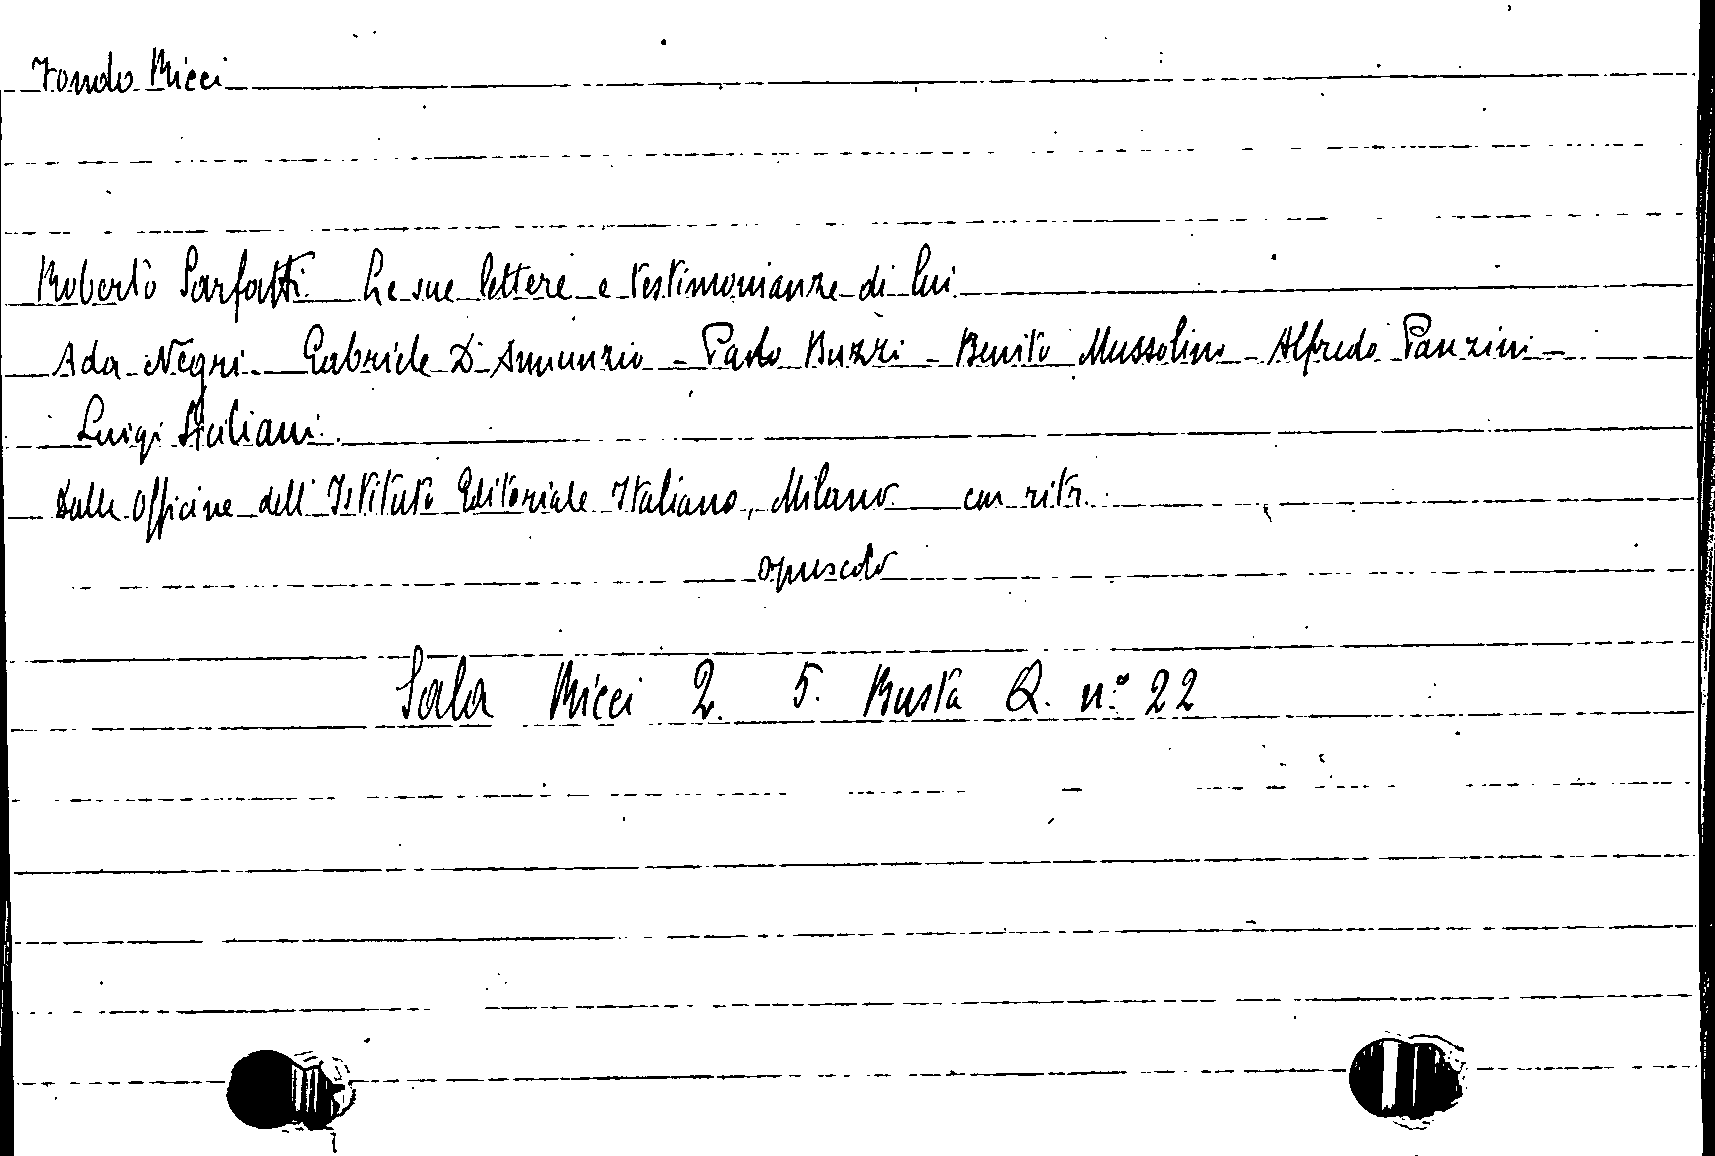 Fondo Ricci
Roberto Sarfatti. Le sue lettere e testimonianze di lui
Ada Negri - Gabriele D'Annunzio - Paolo Buzzi - Benito Mussolini - Alfredo Panzini -
Luigi Siciliani.
Dalle Officine dell'Istituto Editoriale Italiano, Milano con ritr.
opuscolo
Sala Ricci 2. 5. Busta Q. n.º 22